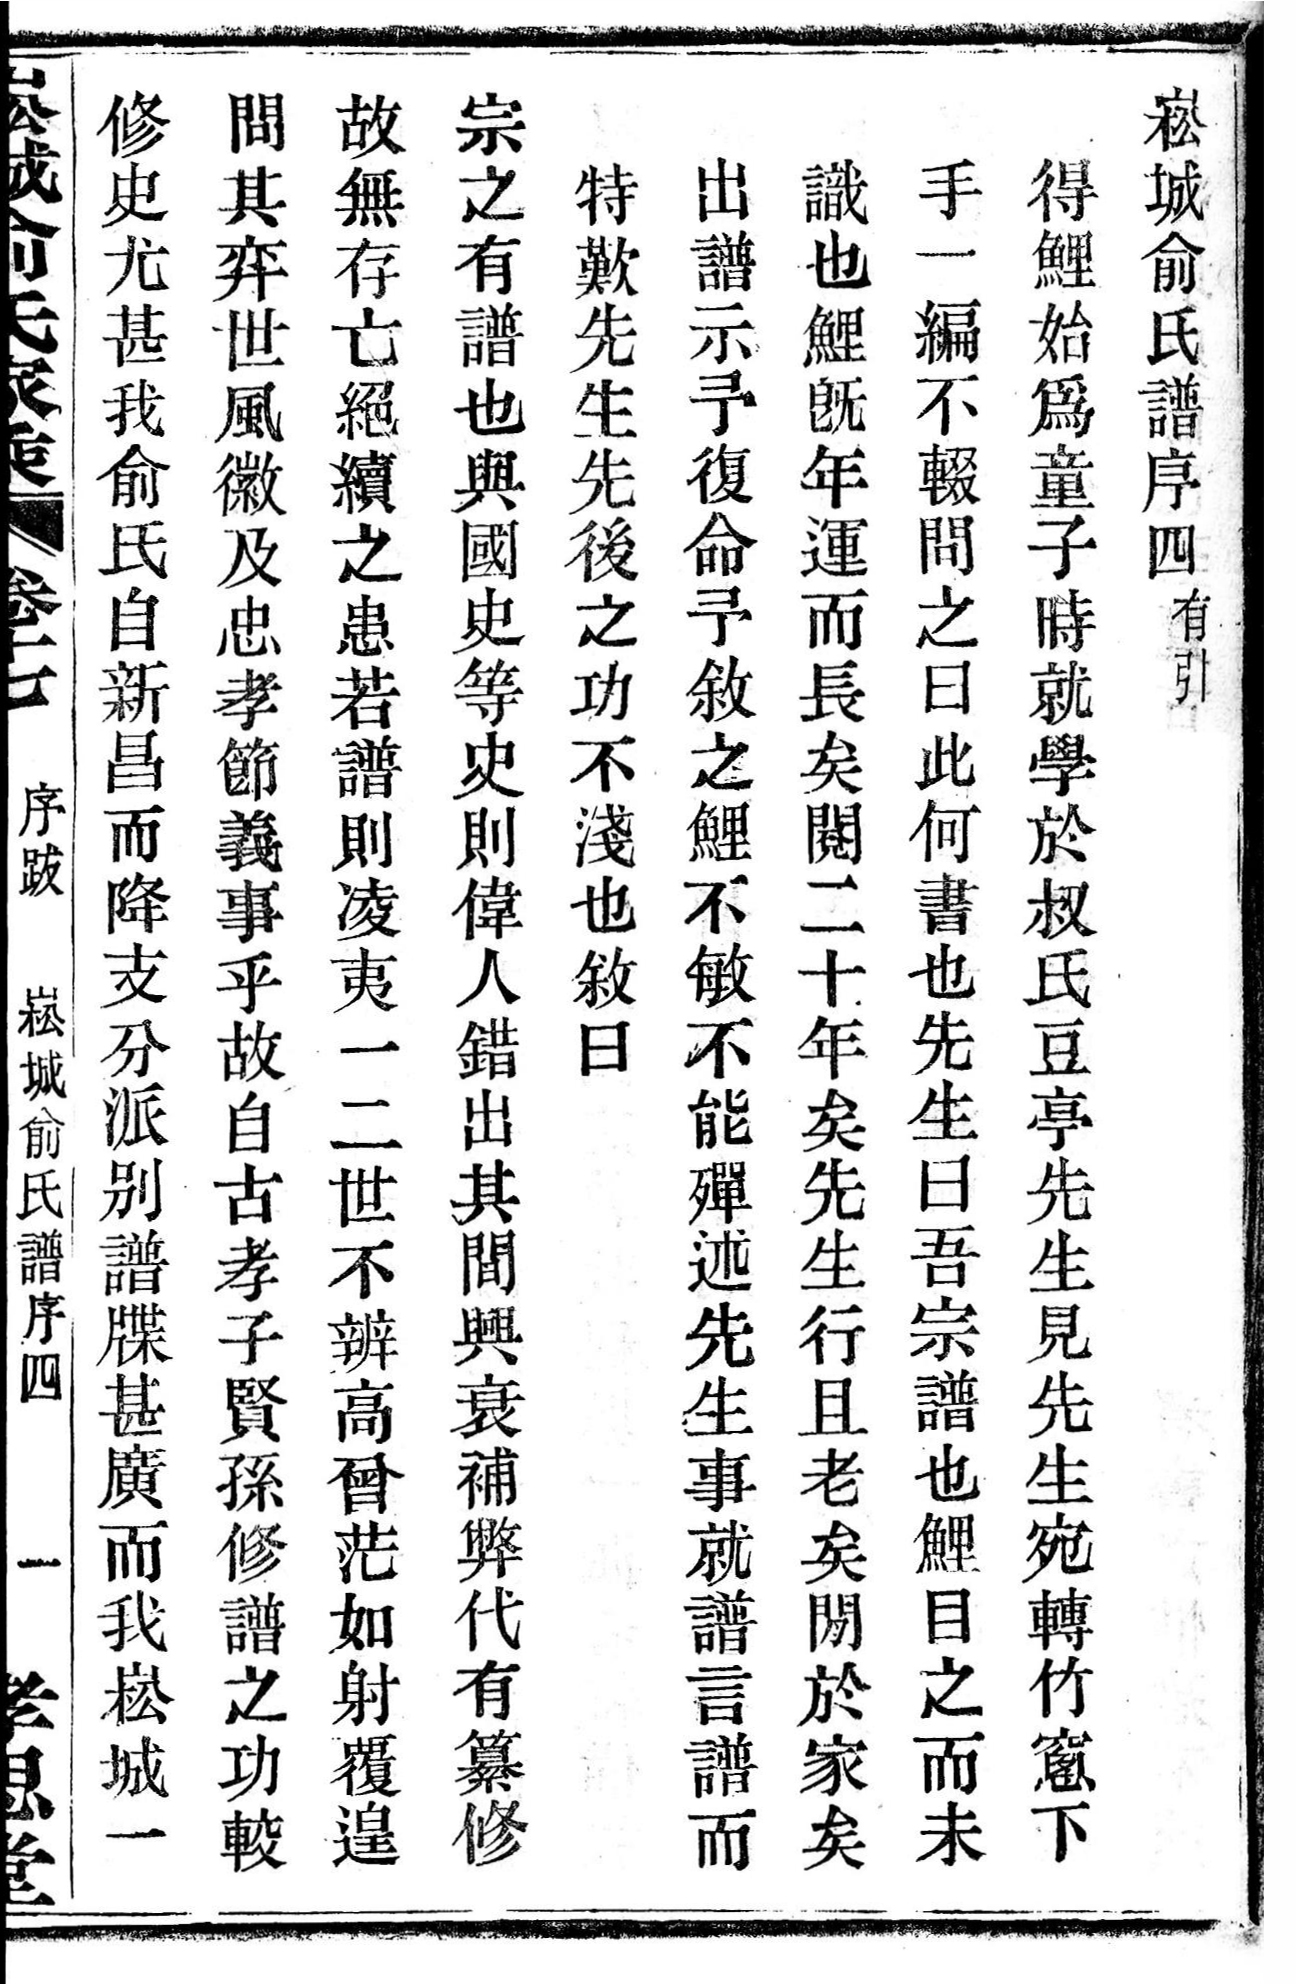 崧城俞氏譜序四有引
得鯉始爲童子時就學於叔氏豆亭先生見先生宛轉竹窻下
手一編不輟問之曰此何書也先生曰吾宗譜也鯉目之而未
識也鯉旣年運而長矣閱二十年矣先生行且老矣閒於家矣
出譜示予復命予敘之鯉不敏不能殫述先生事就譜言譜而
特歎先生先後之功不淺也敘曰
宗之有譜也與國史等史則偉人錯出其間興衰補弊代有纂修
故無存亡絕續之患若譜則凌夷一二世不辨高曾茫如射覆遑
問其弈世風徽及忠孝節義事乎故自古孝子賢孫修譜之功較
修史尤甚我俞氏自新昌而降支分派別譜牒甚廣而我崧城一
崧城俞氏家乘 卷十七 序跋 崧城俞氏譜序四 一 孝思堂